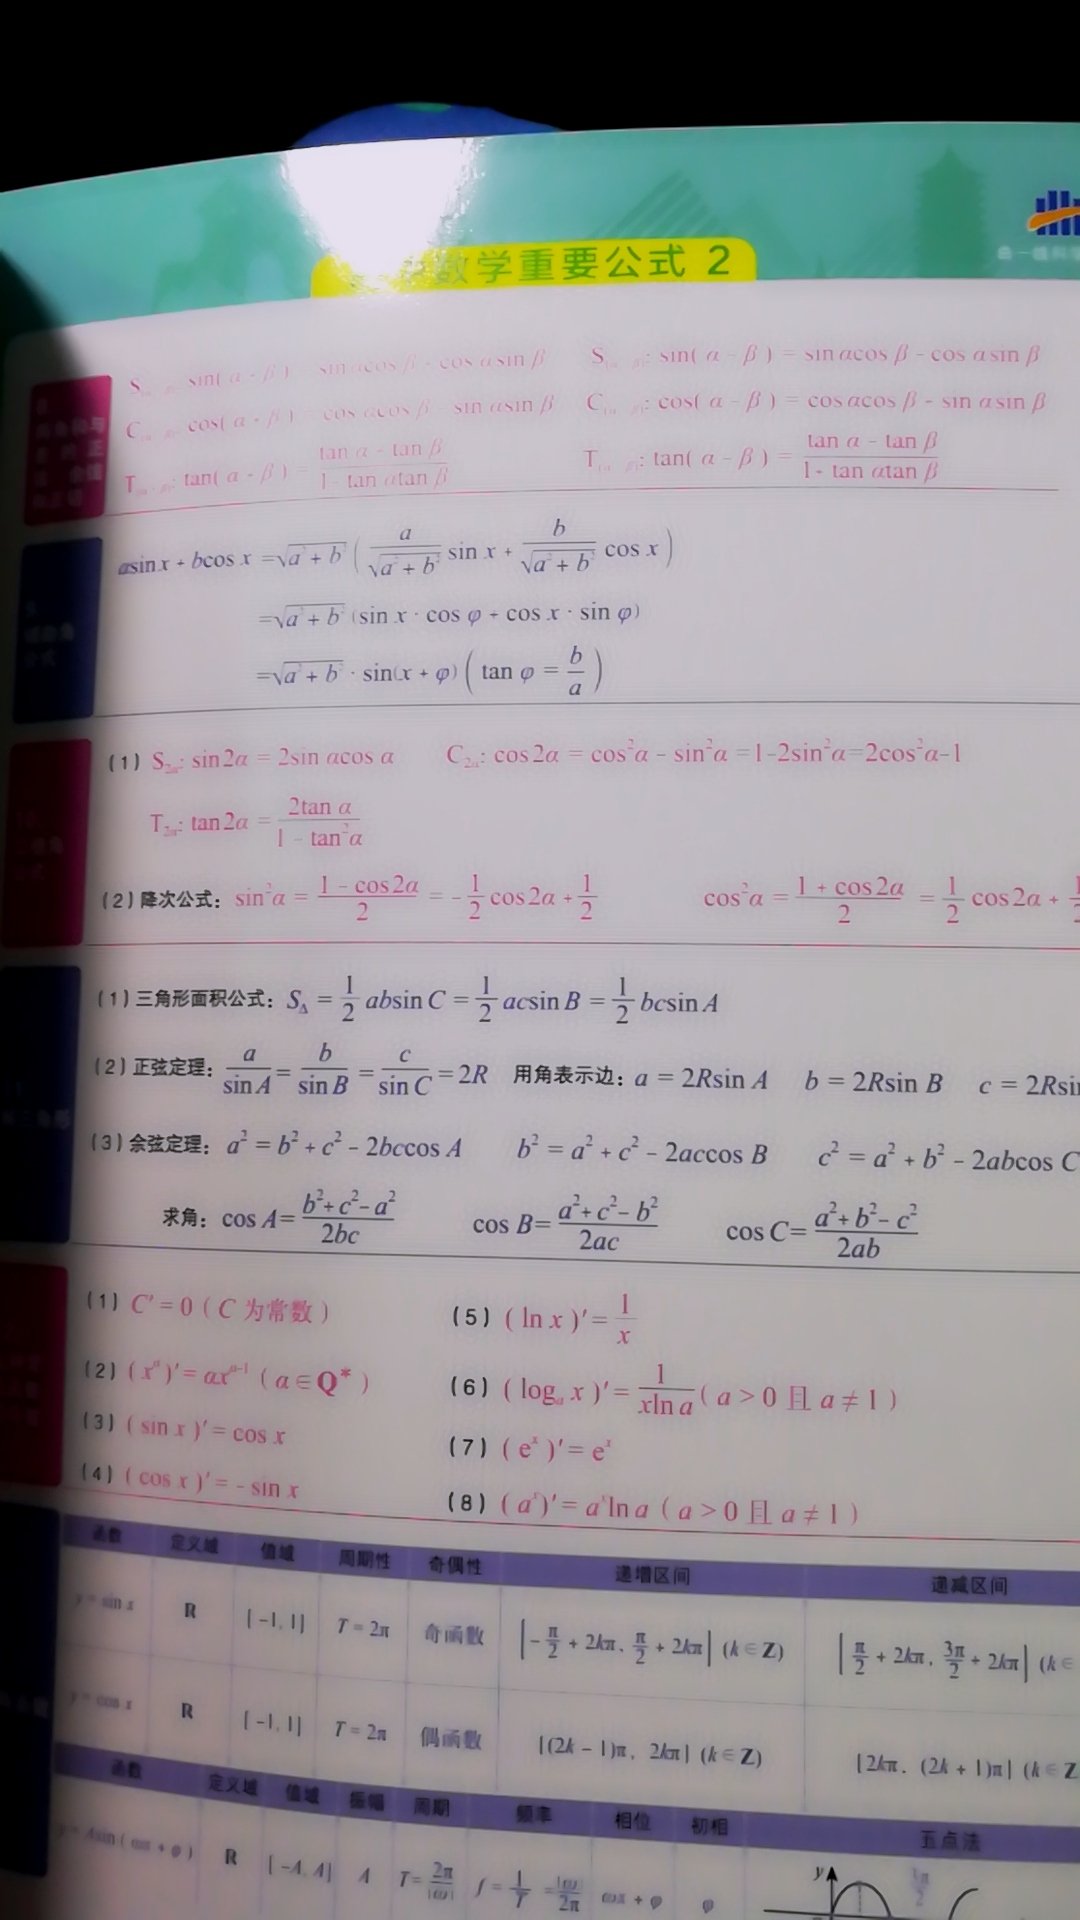 数学重要公式 2
sin( α - β ) = sin αcos β - cos αsin β
cos( α - β ) = cos αcos β - sin αsin β
tan( α - β ) = (tan α - tan β)/(1- tan αtan β)
asin x + bcos x =√(a² + b²) ( a/√(a² + b²) sin x + b/√(a² + b²) cos x )
=√(a² + b²) (sin x · cos φ + cos x · sin φ)
=√(a² + b²) · sin(x + φ) ( tan φ = b/a )
(1) S₂α: sin2α = 2sin αcos α C₂α: cos2α = cos²α - sin²α =1-2sin²α=2cos²α-1
T₂α: tan2α = 2tan α/(1 - tan²α)
(2) 降次公式: sin²α = (1 - cos2α)/2 = -1/2 cos2α + 1/2 cos²α = (1 + cos2α)/2 = 1/2 cos2α +
(1) 三角形面积公式: S△ = 1/2 absin C = 1/2 acsin B = 1/2 bcsin A
(2) 正弦定理: a/sin A = b/sin B = c/sin C = 2R 用角表示边: a = 2Rsin A b = 2Rsin B c = 2Rsin
(3) 余弦定理: a² = b² + c² - 2bccos A b² = a² + c² - 2accos B c² = a² + b² - 2abcos C
求角: cos A= (b²+c²-a²)/2bc cos B= (a²+c²-b²)/2ac cos C= (a²+b²-c²)/2ab
(1) C′= 0 ( C 为常数 ) (5) ( ln x )′= 1/x
(2) ( xᵅ )′= αxᵅ⁻¹ ( α∈Q* ) (6) ( logₐ x )′= 1/(xln a) ( a > 0 且 a ≠ 1 )
(3) ( sin x )′= cos x (7) ( eˣ )′= eˣ
(4) ( cos x )′= - sin x (8) ( aˣ )′= aˣln a ( a > 0 且 a ≠ 1 )
函数 定义域 值域 周期性 奇偶性 递增区间 递减区间
y = sin x R [ -1, 1] T = 2π 奇函数 [-π/2 + 2kπ, π/2 + 2kπ] (k∈Z) [π/2 + 2kπ, 3π/2 + 2kπ] (k∈
y = cos x R [ -1, 1] T = 2π 偶函数 [(2k - 1)π, 2kπ] (k∈Z) [2kπ, (2k + 1)π] (k∈Z
函数 定义域 值域 振幅 周期 频率 相位 初相 五点法
y = Asin ( ωx + φ ) R [ -A, A] A T = 2π/|ω| f = 1/T = |ω|/2π ωx + φ φ
y 3π/2